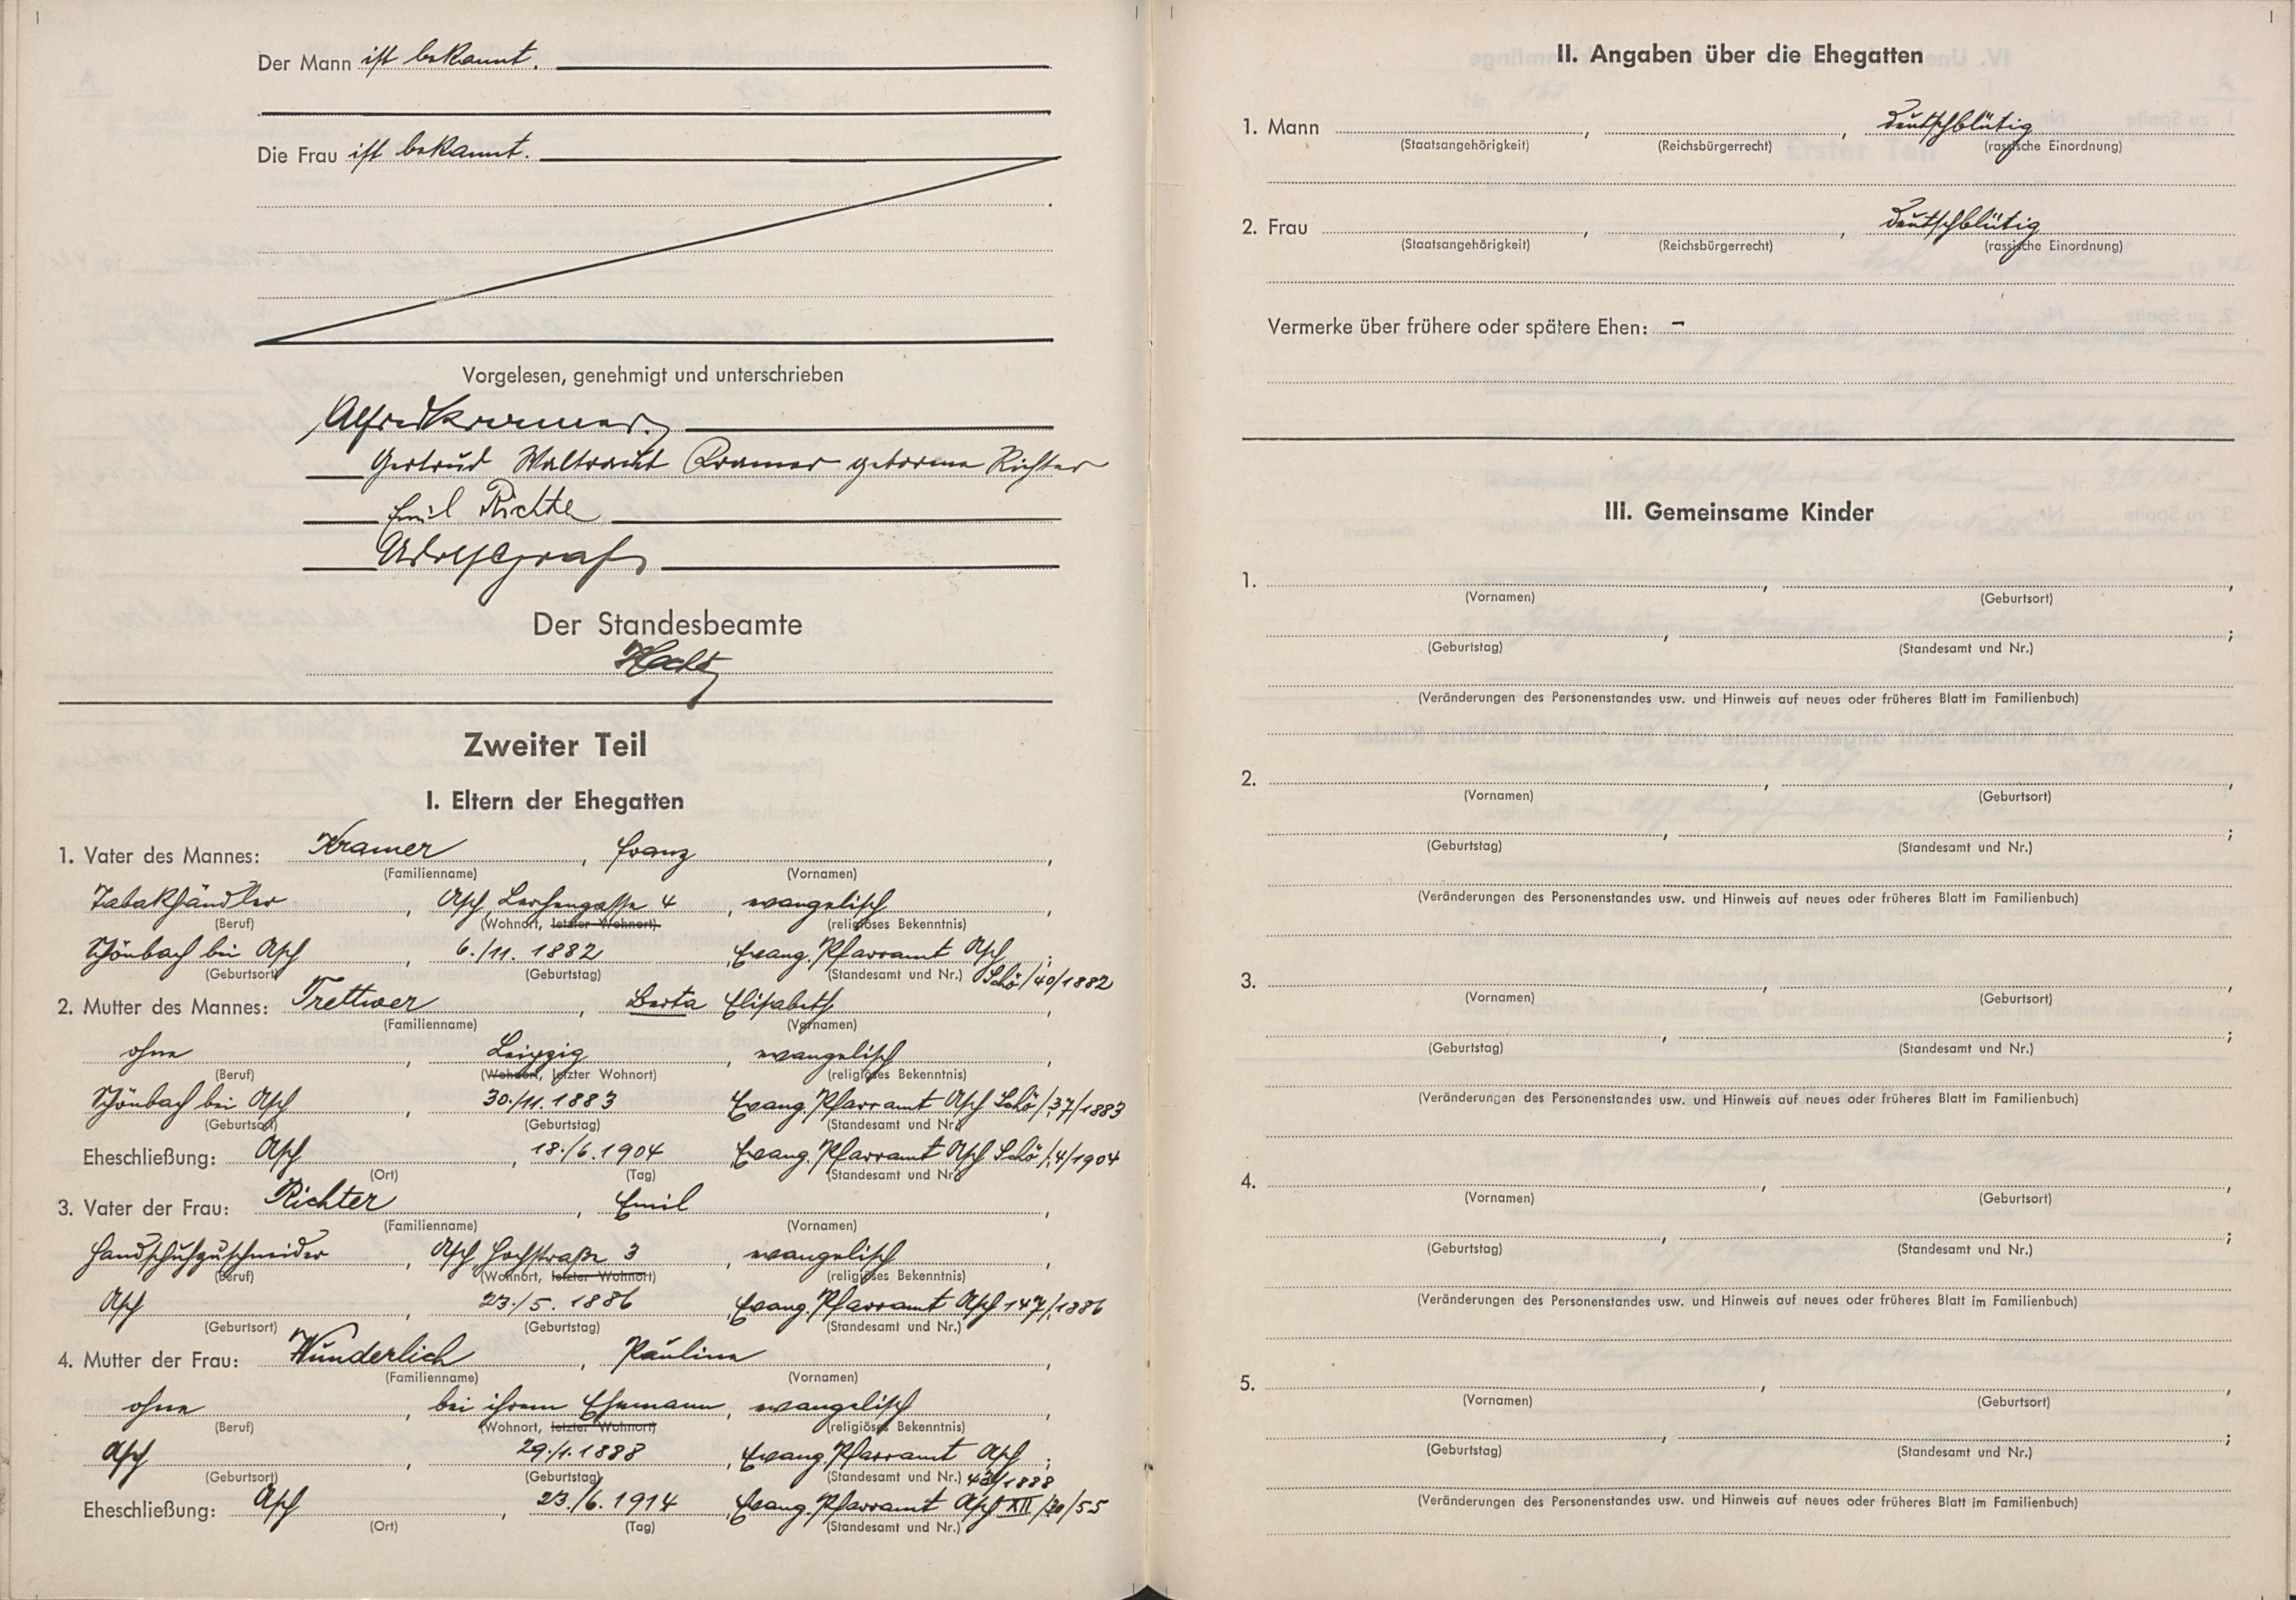 Der Mann ist bekannt.
Die Frau ist bekannt.
Vorgelesen, genehmigt und unterschrieben
Alfred Kramer.
Gertrud Waltraut Kramer geborene Richter
Emil Richter
Graf
Der Standesbeamte
Zweiter Teil
I. Eltern der Ehegatten
1. Vater des Mannes: Kramer, Franz,
(Familienname) (Vornamen)
Tabakhändler, Asch, Lerchengasse 4, evangelisch,
(Beruf) (Wohnort, letzter Wohnort) (religiöses Bekenntnis)
Schönbach bei Asch, 6./11. 1882, Evang. Pfarramt Asch;
(Geburtsort) (Geburtstag) (Standesamt und Nr.) Schö/40/1882
2. Mutter des Mannes: Trettwer, Berta Elisabeth,
(Familienname) (Vornamen)
ohne, Leipzig, evangelisch,
(Beruf) (Wohnort, letzter Wohnort) (religiöses Bekenntnis)
Schönbach bei Asch, 30./11. 1883, Evang. Pfarramt Asch Schö/37/1883
(Geburtsort) (Geburtstag) (Standesamt und Nr.)
Eheschließung: Asch, 18./6. 1904, Evang. Pfarramt Asch Schö/4/1904
(Ort) (Tag) (Standesamt und Nr.)
3. Vater der Frau: Richter, Emil,
(Familienname) (Vornamen)
Handschuhzuschneider, Asch, Hochstraße 3, evangelisch,
(Beruf) (Wohnort, letzter Wohnort) (religiöses Bekenntnis)
Asch, 23./5. 1886, Evang. Pfarramt Asch 147/1886
(Geburtsort) (Geburtstag) (Standesamt und Nr.)
4. Mutter der Frau: Wunderlich, Pauline,
(Familienname) (Vornamen)
ohne, bei ihrem Ehemann, evangelisch,
(Beruf) (Wohnort, letzter Wohnort) (religiöses Bekenntnis)
Asch, 29./1. 1888, Evang. Pfarramt Asch;
(Geburtsort) (Geburtstag) (Standesamt und Nr.)
Eheschließung: Asch, 23./6. 1914, Evang. Pfarramt Asch XII/30/55
(Ort) (Tag) (Standesamt und Nr.)
II. Angaben über die Ehegatten
1. Mann , , deutschblütig
(Staatsangehörigkeit) (Reichsbürgerrecht) (rassische Einordnung)
2. Frau , , deutschblütig
(Staatsangehörigkeit) (Reichsbürgerrecht) (rassische Einordnung)
Vermerke über frühere oder spätere Ehen: -
III. Gemeinsame Kinder
1. , ,
(Vornamen) (Geburtsort)
, ;
(Geburtstag) (Standesamt und Nr.)
(Veränderungen des Personenstandes usw. und Hinweis auf neues oder früheres Blatt im Familienbuch)
2. , ,
(Vornamen) (Geburtsort)
, ;
(Geburtstag) (Standesamt und Nr.)
(Veränderungen des Personenstandes usw. und Hinweis auf neues oder früheres Blatt im Familienbuch)
3. , ,
(Vornamen) (Geburtsort)
, ;
(Geburtstag) (Standesamt und Nr.)
(Veränderungen des Personenstandes usw. und Hinweis auf neues oder früheres Blatt im Familienbuch)
4. , ,
(Vornamen) (Geburtsort)
, ;
(Geburtstag) (Standesamt und Nr.)
(Veränderungen des Personenstandes usw. und Hinweis auf neues oder früheres Blatt im Familienbuch)
5. , ,
(Vornamen) (Geburtsort)
, ;
(Geburtstag) (Standesamt und Nr.)
(Veränderungen des Personenstandes usw. und Hinweis auf neues oder früheres Blatt im Familienbuch)